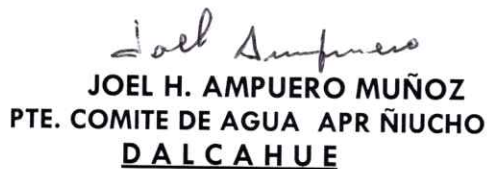 Joel Ampuero
JOEL H. AMPUERO MUÑOZ
PTE. COMITE DE AGUA APR ÑIUCHO
DALCAHUE